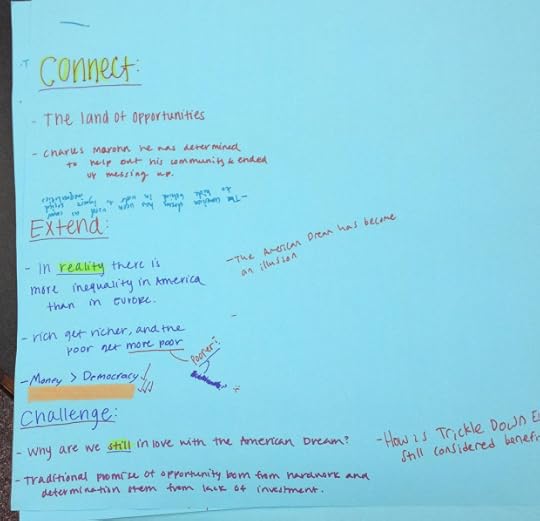 Connect:
- The land of opportunities
- Charles Marohn he was determined
to help out his community & ended
up messing up.
- The American dream has been used as cover
to hide behind in order to ignore
inequalities
Extend:
- In reality there is
more inequality in America
than in Europe.
- The American Dream has become
an illusion
- rich get richer, and the
poor get more poor
poorer?
- Money > Democracy
Challenge:
- Why are we still in love with the American Dream?
- How is Trickle Down
still considered
- Traditional promise of opportunity born from hardwork and
determination stem from lack of investment.